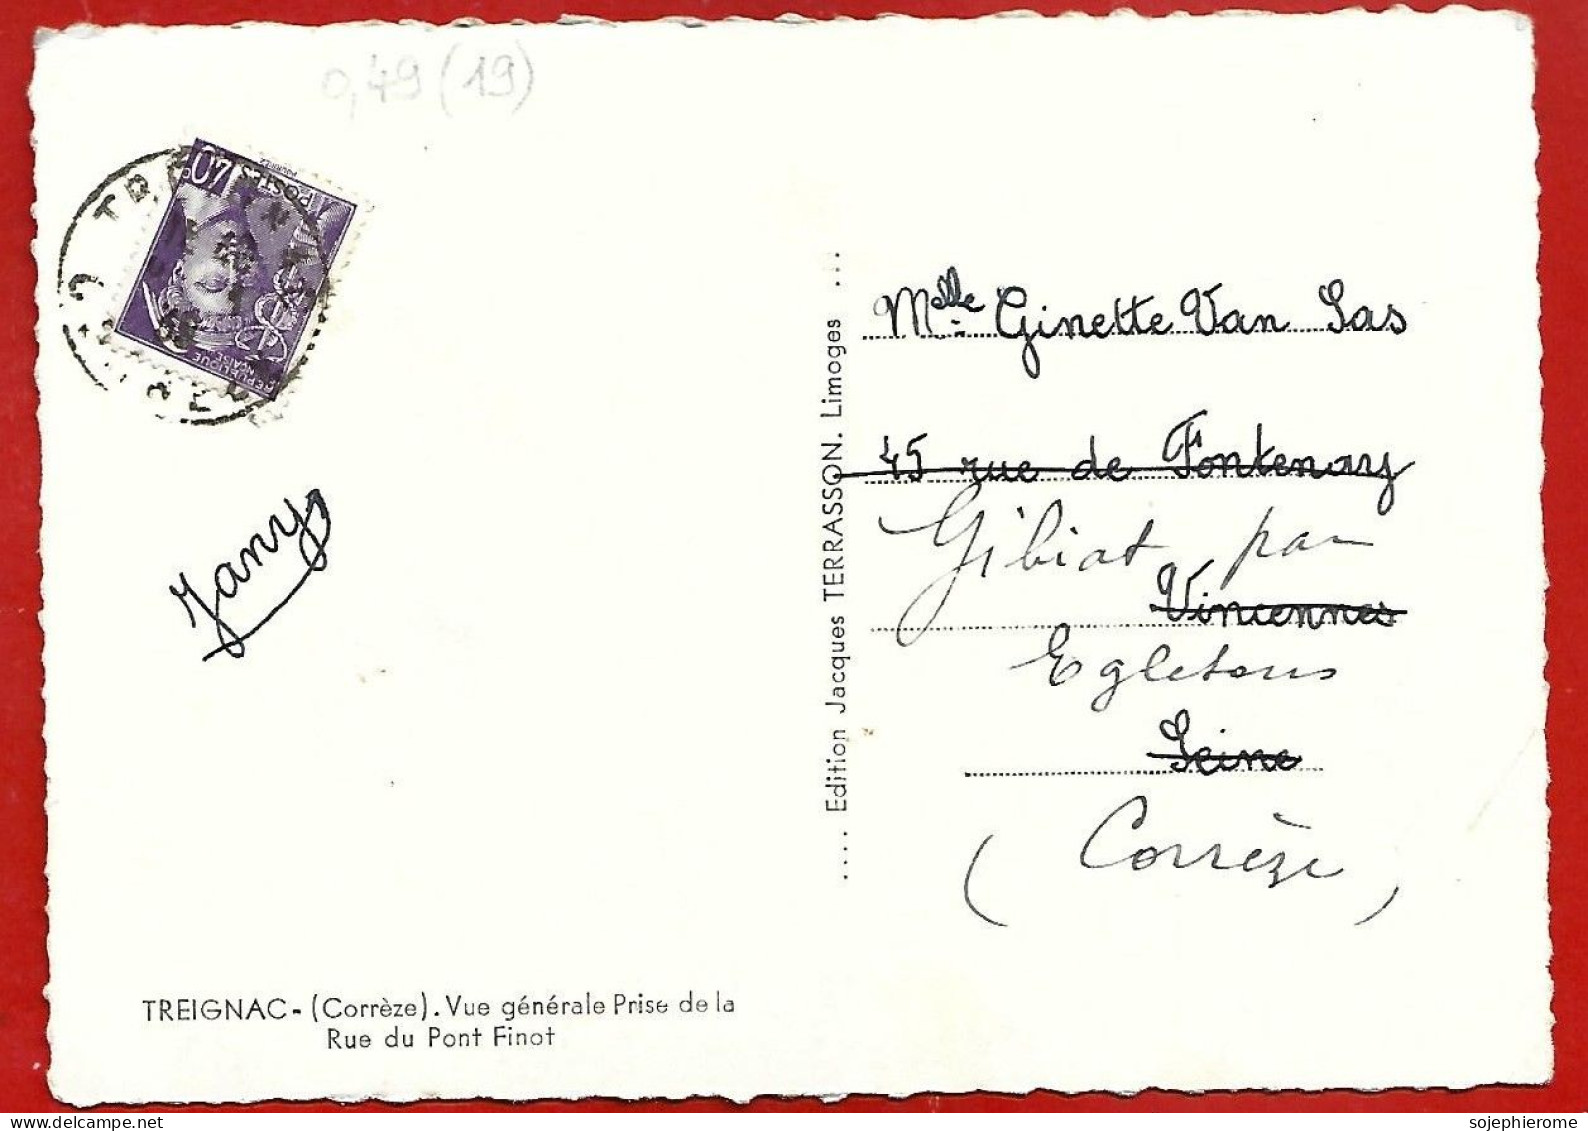 0,49 (19)
40
POSTES
REPUBLIQUE
FRANÇAISE
Jany
TREIGNAC - (Corrèze). Vue générale Prise de la
Rue du Pont Finot
.... Edition Jacques TERRASSON. Limoges ...
Melle Ginette Van Sas
45 rue de Fontenay
Gibiat par
Vincennes
Egletons
Seine
(Corrèze)
www.delcampe.net
sojephierome